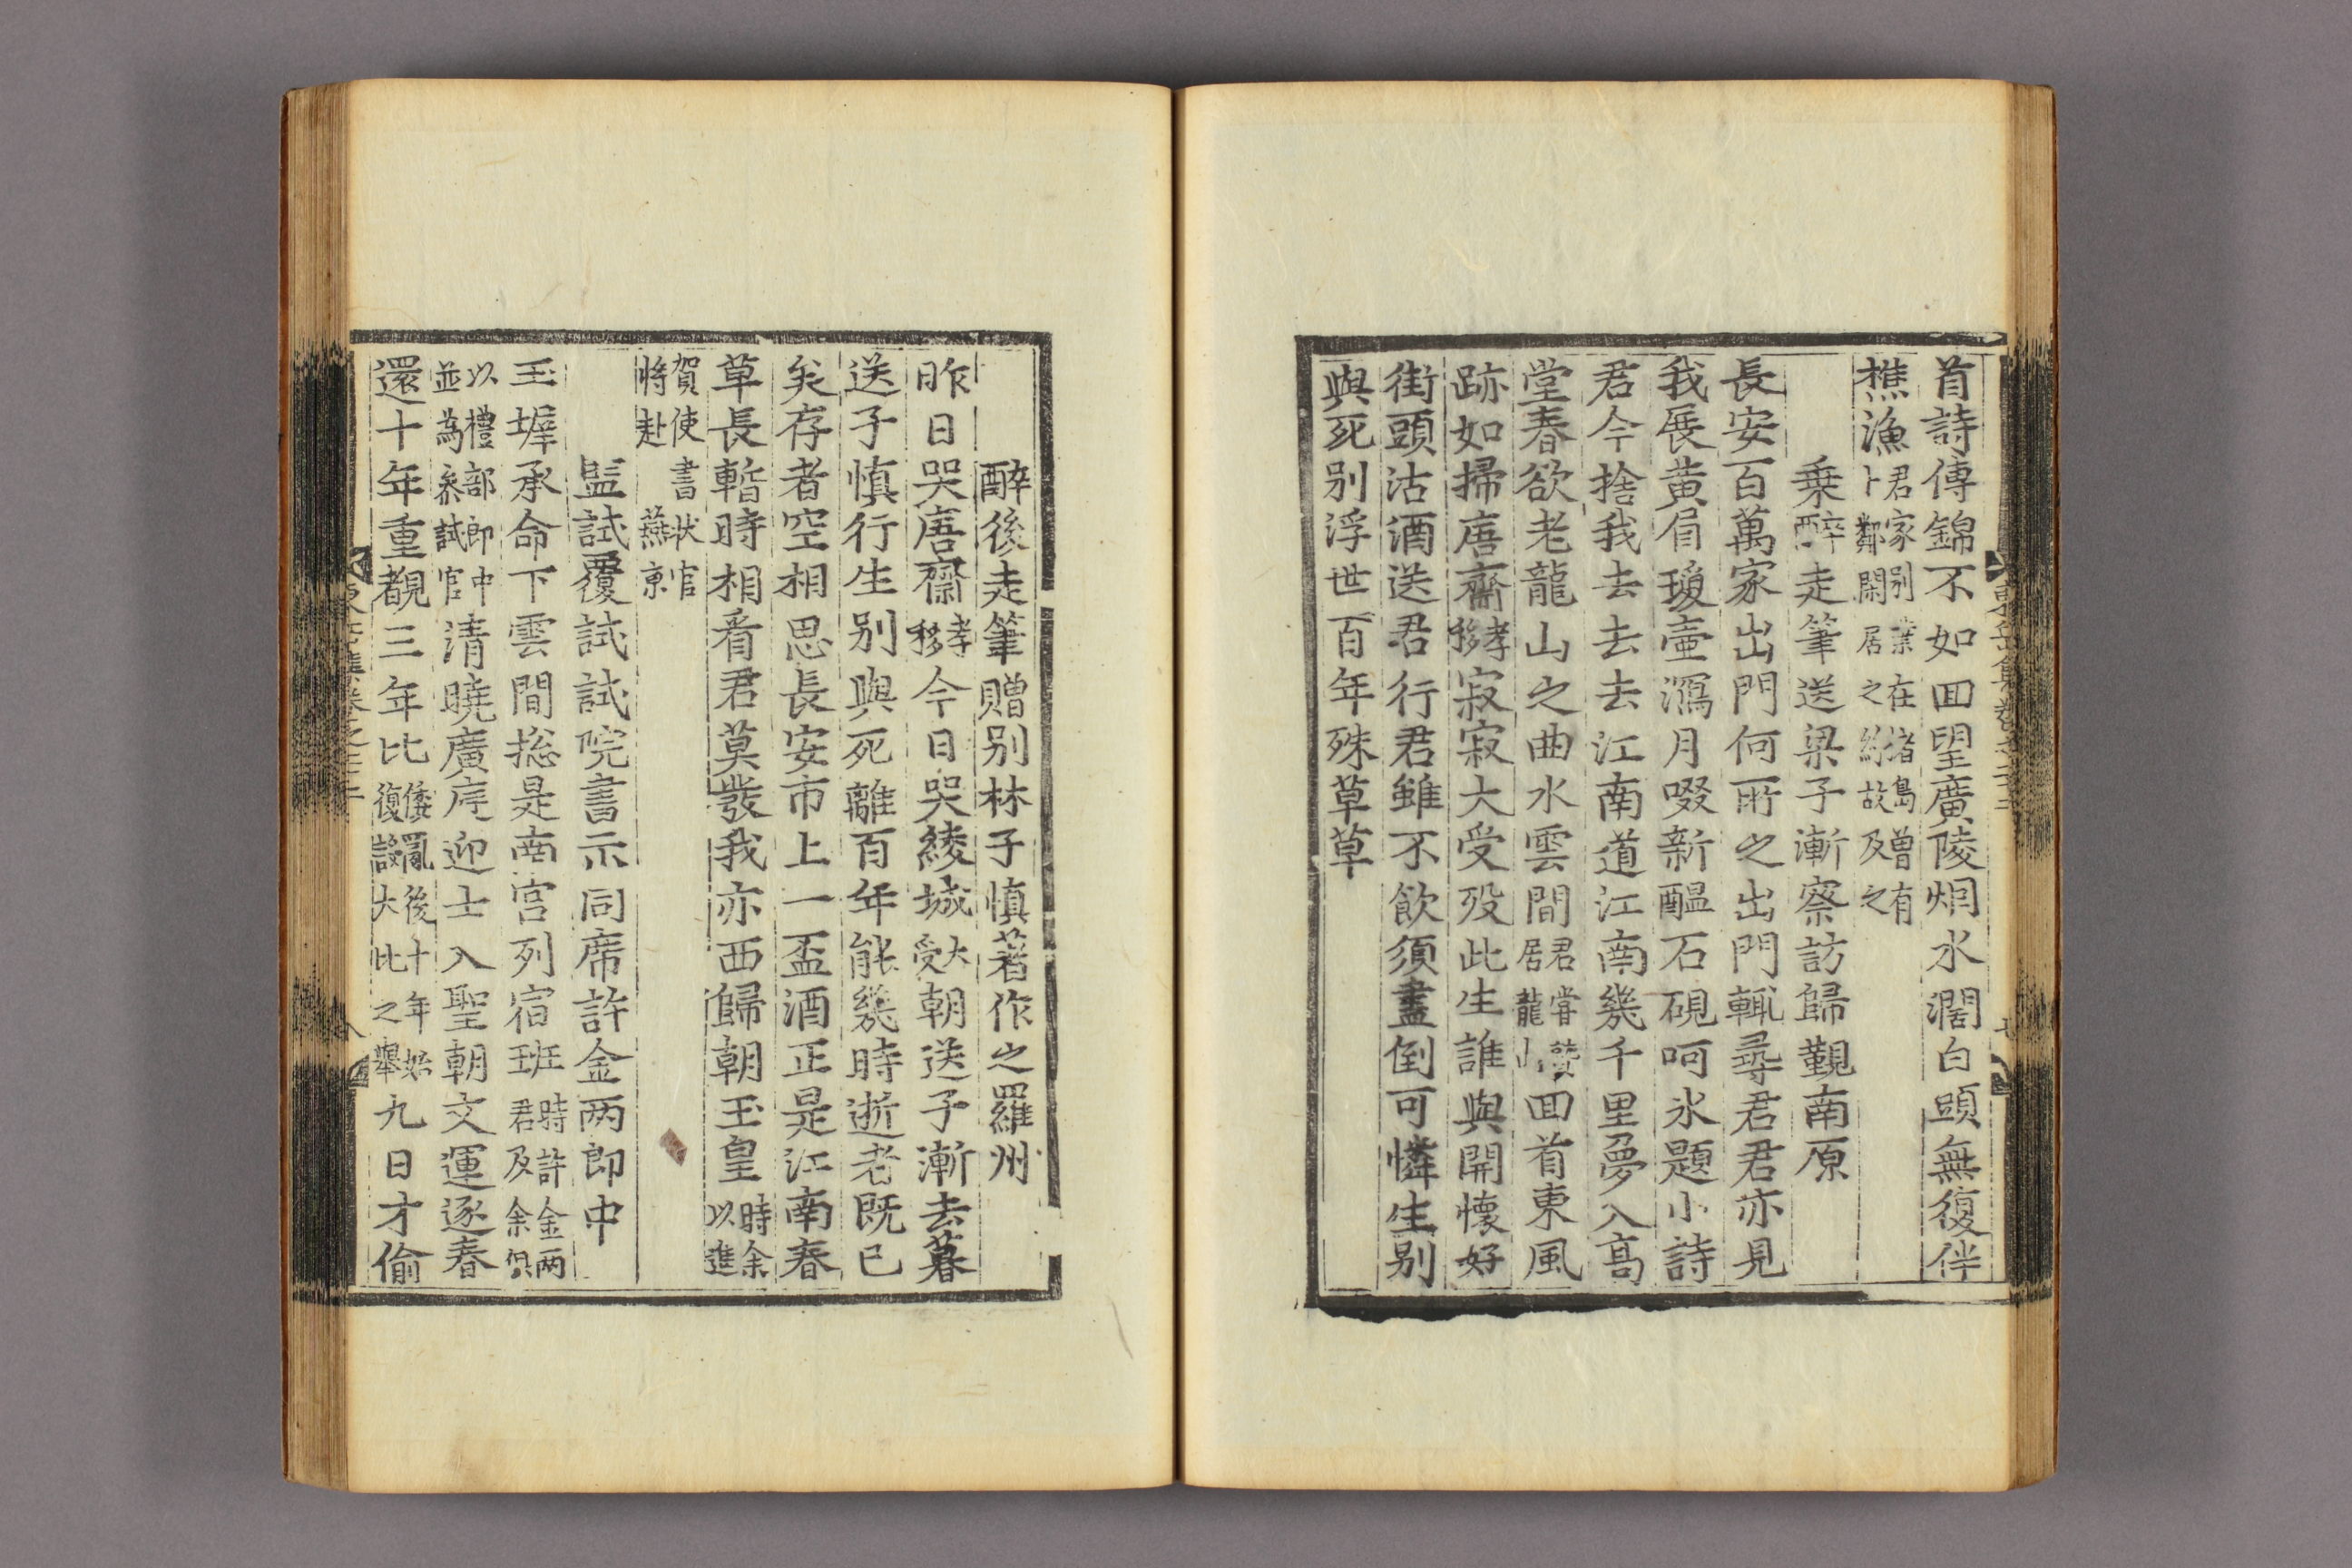 首詩傳錦不如回望廣陵烟水濶白頭無復伴
樵漁君家別業在渚島曾有卜鄰閑居之約故及之
乗醉走筆送梁子漸察訪歸覲南原
長安百萬家出門何所之出門輒尋君君亦見
我展黄眉瓊壺瀉月啜新醞石硯呵氷題小詩
君今捨我去去去江南道江南幾千里夢入高
堂春欲老龍山之曲水雲間君嘗僦居龍山回首東風
跡如掃唐齋孝移寂寂大受歿此生誰與開懷好
街頭沽酒送君行君雖不飲須盡倒可憐生別
與死別浮世百年殊草草
醉後走筆贈別林子慎著作之羅州
昨日哭唐齋孝移今日哭綾城大受朝送子漸去暮
送子慎行生別與死離百年能幾時逝者既已
矣存者空相思長安市上一盃酒正是江南春
草長暫時相看君莫發我亦西歸朝玉皇時余以進
賀使書狀官將赴燕京
監試覆試試院書示同席許金两郎中
玉墀承命下雲間揔是南宮列宿班時許金两君及余俱
以禮部郎中並為叅試官清曉廣庭迎士入聖朝文運逐春
還十年重覩三年比倭亂後十年始復設大比之舉九日才偷